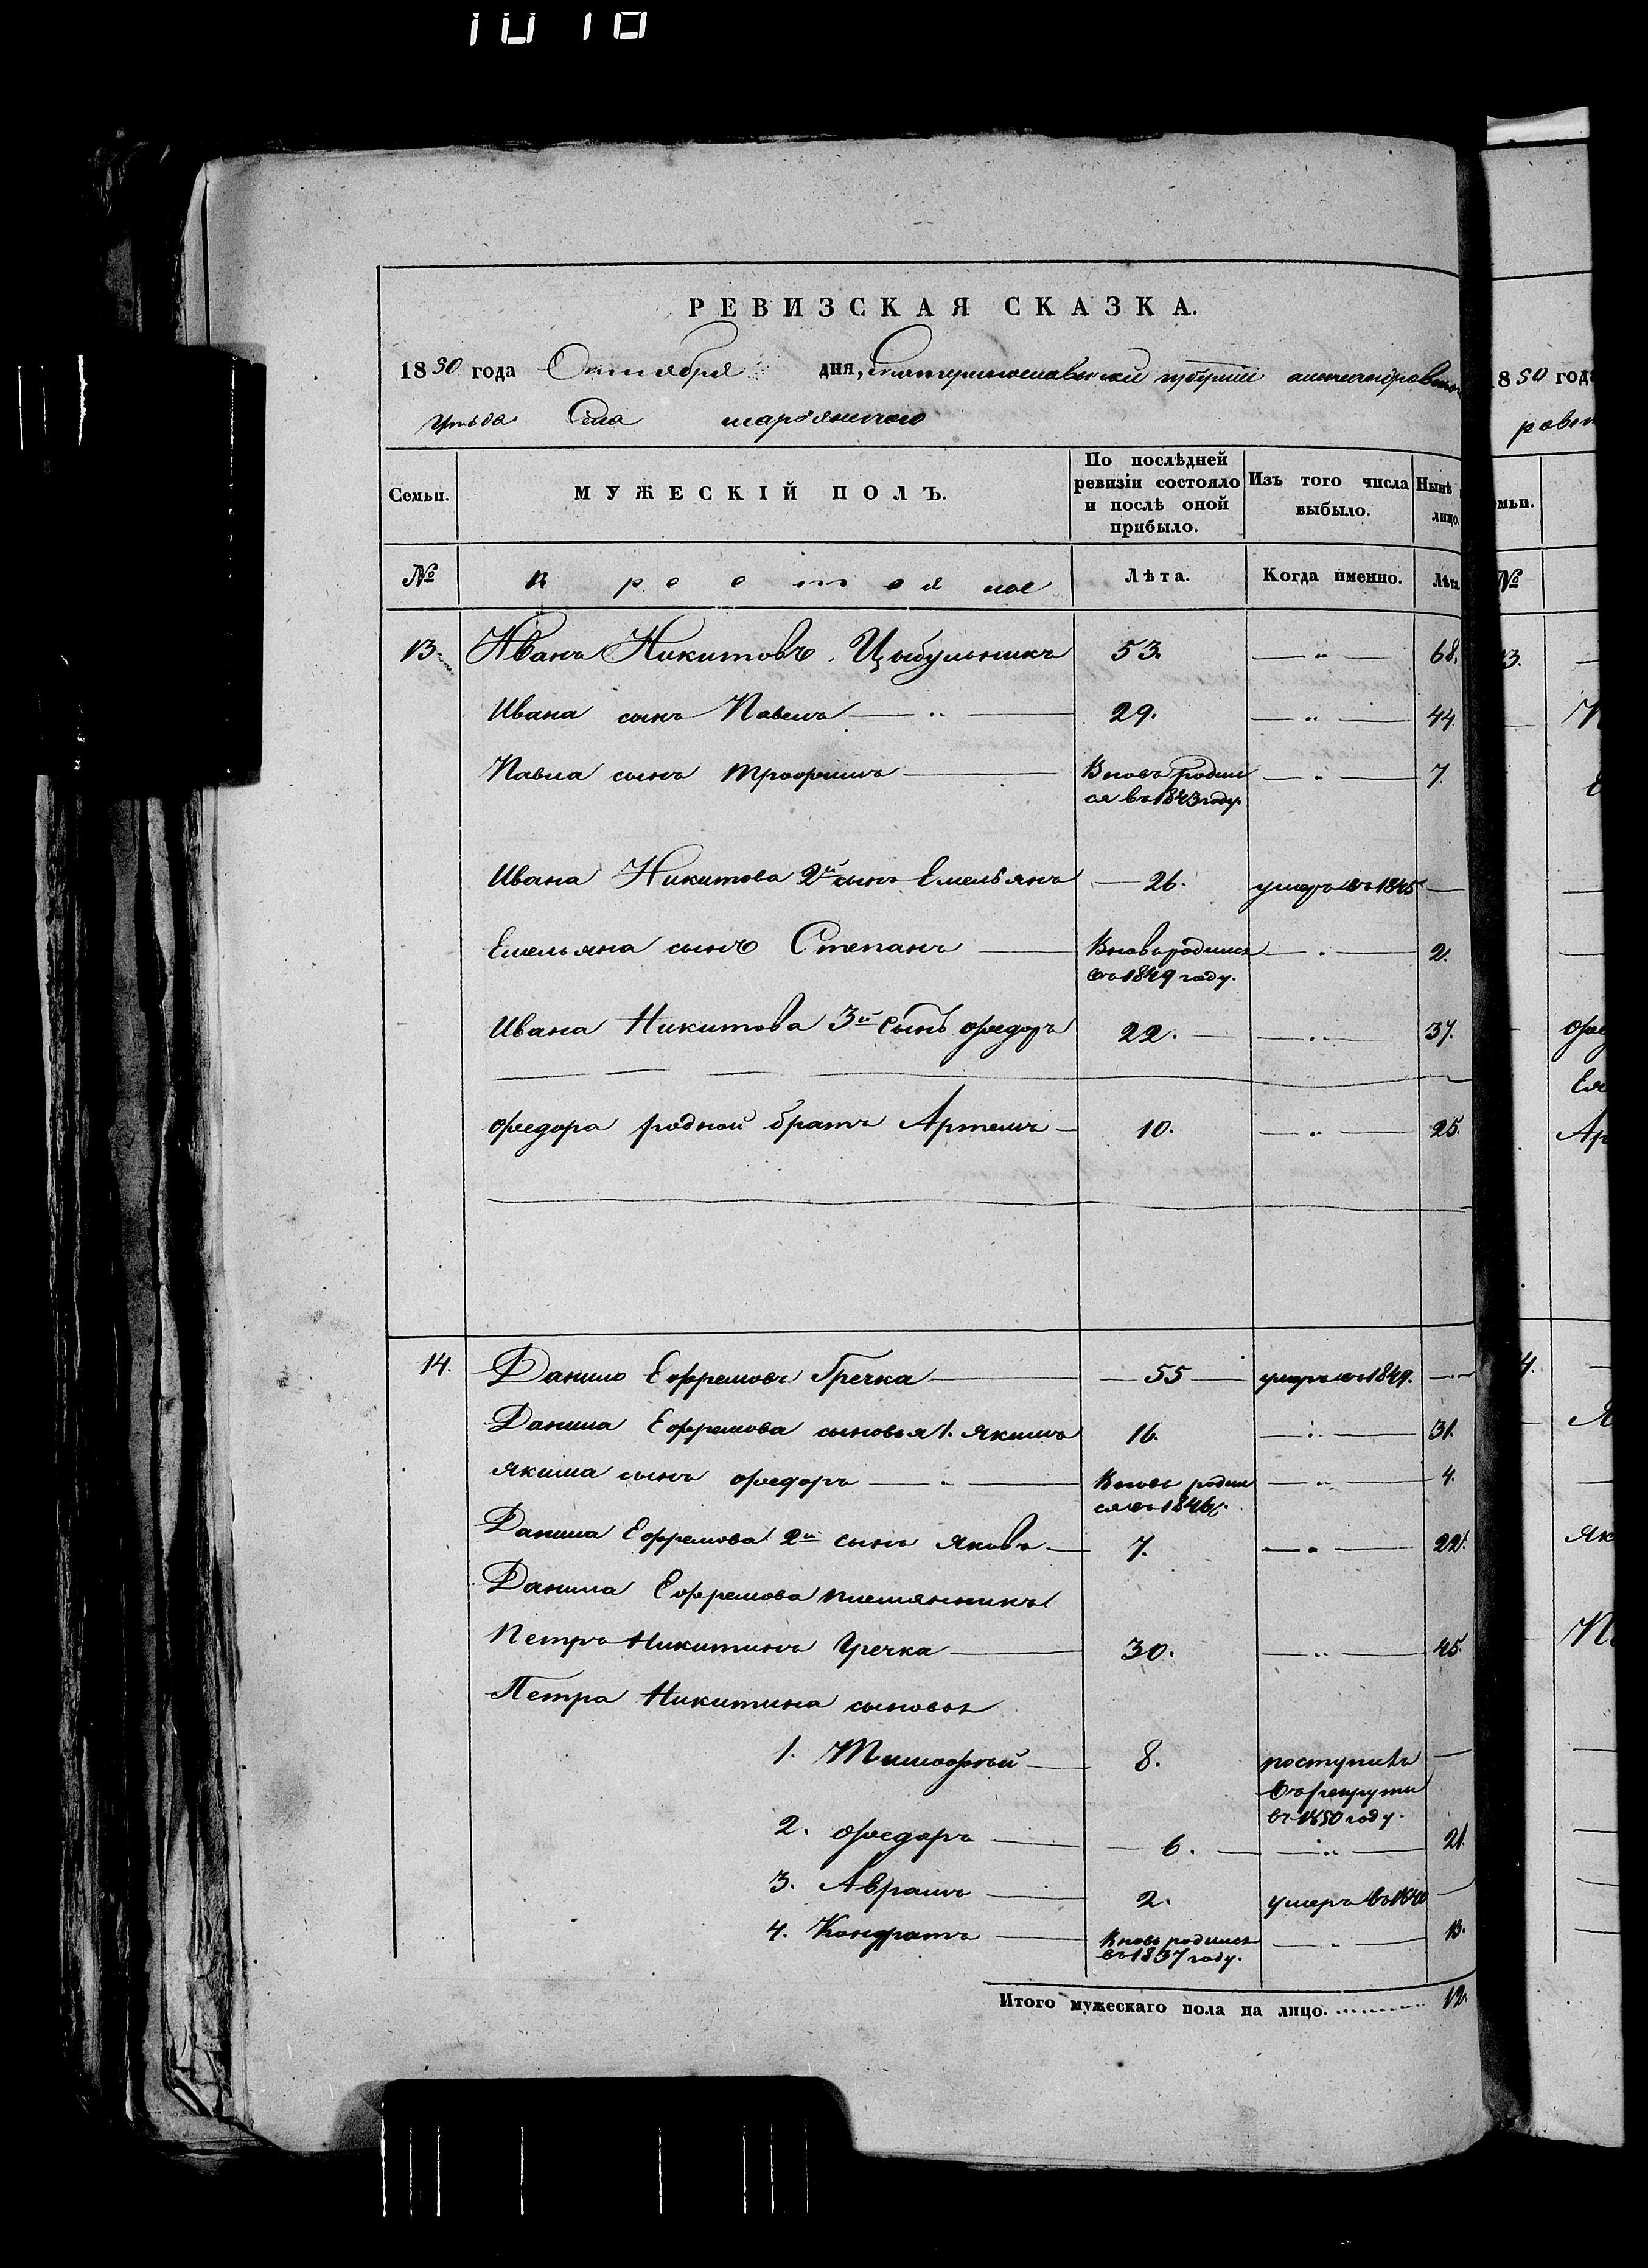 РЕВИЗСКАЯ СКАЗКА.
1850 года Октября дня, Екатеринославской губернии александровского
уезда Села марьянского
Семьи.
МУЖЕСКІЙ ПОЛЪ.
По послѣдней ревизіи состояло и послѣ оной прибыло.
Изъ того числа выбыло.
Нынѣ лицо.
№ крестьяне Лѣта. Когда именно. Лѣта
13. Иванъ Никитовъ Цыбульникъ 53. — „ — 68.
Ивана сынъ Павелъ — „ — 29. — „ — 44.
Павла сынъ Трофимъ — Вновь родил — „ — 7.
ся въ 1843 году.
Ивана Никитова 2й сынъ Емельянъ — 26. умеръ въ 1845 —
Емельяна сынъ Степанъ — Вновь родился — „ — 2.
въ 1849 году.
Ивана Никитова 3й сынъ Федоръ 22. — „ — 37.
Федора родной братъ Артемъ — 10. — „ — 25.
14. Данило Ефремовъ Гречка — 55 — умеръ въ 1849. —
Данила Ефремова сыновья 1. Якимъ 16. — „ — 31.
Якима сынъ Федоръ — „ — Вновь родил — „ — 4.
ся въ 1846г.
Данила Ефремова 2й сынъ Яковъ — 7. — „ — 22.
Данила Ефремова племянникъ
Петръ Никитинъ Гречка — 30. — „ — 45.
Петра Никитина сыновья
1. Тимофей — 8. поступилъ —
въ рекруты
въ 1850 году.
2. Федоръ — 6. — „ — 21.
3. Аврамъ — 2. умеръ въ 1840 —
4. Кондратъ — Вновь родился — „ — 13.
въ 1837 году.
Итого мужескаго пола на лицо. .......... 12.
1850 года
№
13.